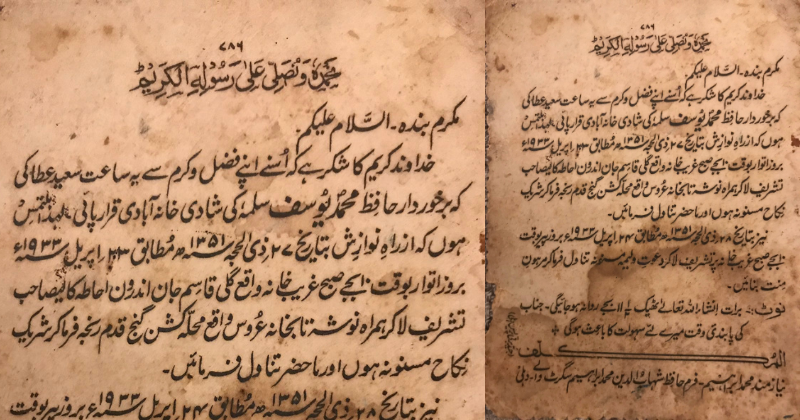 ۷۸۶
نحمدہٗ و نصلی علیٰ رسولہ الکریم
مکرم بندہ۔ السّلام علیکم۔
خداوند کریم کا شکر ہے کہ اُسنے اپنے فضل و کرم سے یہ ساعت سعید عطا کی
کہ برخوردار حافظ محمد یوسف سلمہٗ کی شادی خانہ آبادی قرار پائی لہٰذا ملتمس
ہوں کہ از راہِ نوازش بتاریخ ۲۷ ذی الحجہ ۱۳۵۱ھ مُطابق ۲۳ اپریل ۱۹۳۳ء
بروز اتوار بوقت ۱۰ بجے صبح غریب خانہ واقع گلی قاسم جان اندرون احاطہ کالیصاحب
تشریف لاکر ہمراہ نوشہ تا بخانہ عُروس واقع محلہ کشن گنج قدم رنجہ فرماکر شریک
نکاح مسنونہ ہوں اور ماحضر تناول فرمائیں۔
نیز بتاریخ ۲۸ ذی الحجہ ۱۳۵۱ھ مُطابق ۲۴ اپریل ۱۹۳۳ء بروز پیر بوقت
۷۸۶
نحمدہٗ و نصلی علیٰ رسولہ الکریم
مکرم بندہ۔ السّلام علیکم۔
خداوند کریم کا شکر ہے کہ اُسنے اپنے فضل و کرم سے یہ ساعت سعید عطا کی
کہ برخوردار حافظ محمد یوسف سلمہٗ کی شادی خانہ آبادی قرار پائی لہٰذا ملتمس
ہوں کہ از راہِ نوازش بتاریخ ۲۷ ذی الحجہ ۱۳۵۱ھ مُطابق ۲۳ اپریل ۱۹۳۳ء
بروز اتوار بوقت ۱۰ بجے صبح غریب خانہ واقع گلی قاسم جان اندرون احاطہ کالیصاحب
تشریف لاکر ہمراہ نوشہ تا بخانہ عُروس واقع محلہ کشن گنج قدم رنجہ فرماکر شریک
نکاح مسنونہ ہوں اور ماحضر تناول فرمائیں۔
نیز بتاریخ ۲۸ ذی الحجہ ۱۳۵۱ھ مُطابق ۲۴ اپریل ۱۹۳۳ء بروز پیر بوقت
۱۰ بجے صبح غریب خانہ پر تشریف لاکر دعوتِ ولیمہ مسنونہ تناول فرماکر مرہون
منت بنائیں۔
نوٹ:۔ برات انشاء اللہ تعالےٰ ٹھیک ۱۱ بجے روانہ ہوجائیگی۔ جناب
کی پابندی وقت میرے لئے سہولت کا باعث ہوگی
المکلف
نیازمند محمد ابراہیم۔ فرم حافظ شہاب الدین محمد ابراہیم سگرٹ والے دہلی